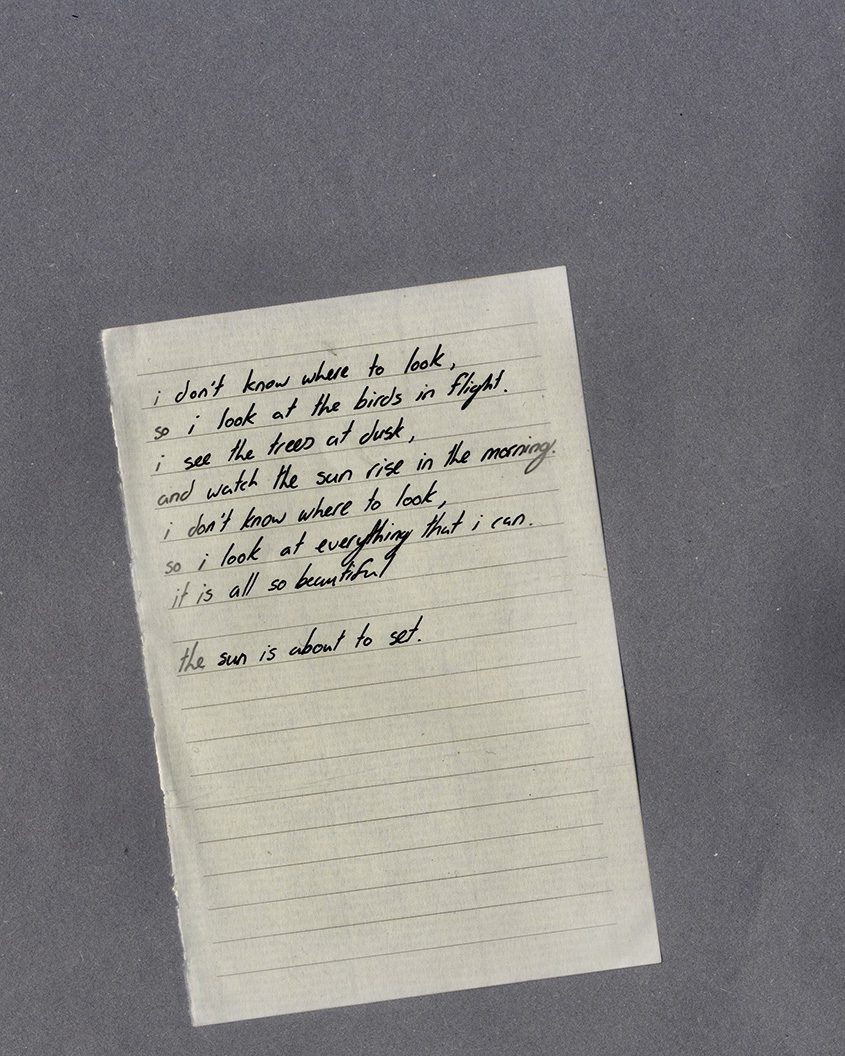 i don't know where to look,
so i look at the birds in flight.
i see the trees at dusk,
and watch the sun rise in the morning.
i don't know where to look,
so i look at everything that i can.
it is all so beautiful
the sun is about to set.